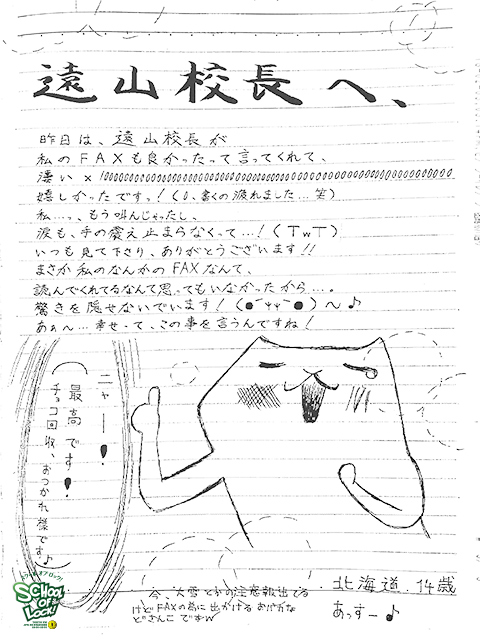 遠山校長へ、
昨日は、遠山校長が
私のFAXも良かったって言ってくれて、
凄い×100000000000000000000000000000000000000000000
嬉しかったですっ!(0、書くの疲れました…笑)
私…っ、もう叫んじゃったし、
涙も、手の震え止まらなくって…!(TwT)
いつも見て下さり、ありがとうございます!!
まさか私のなんかのFAXなんて、
読んでくれてるなんて思ってもいなかったから…。
驚きを隠せないでいます!
あぁ〜…幸せって、この事を言うんですね!
ニャー!
(最高です!
チョコ回収、おつかれ様です♪)
今、大雪とかの注意報出てる
けどFAXの為に出かけるおバカな
どさんこですw
北海道 14歳
あっすー♪
SCHOOL OF LOCK!